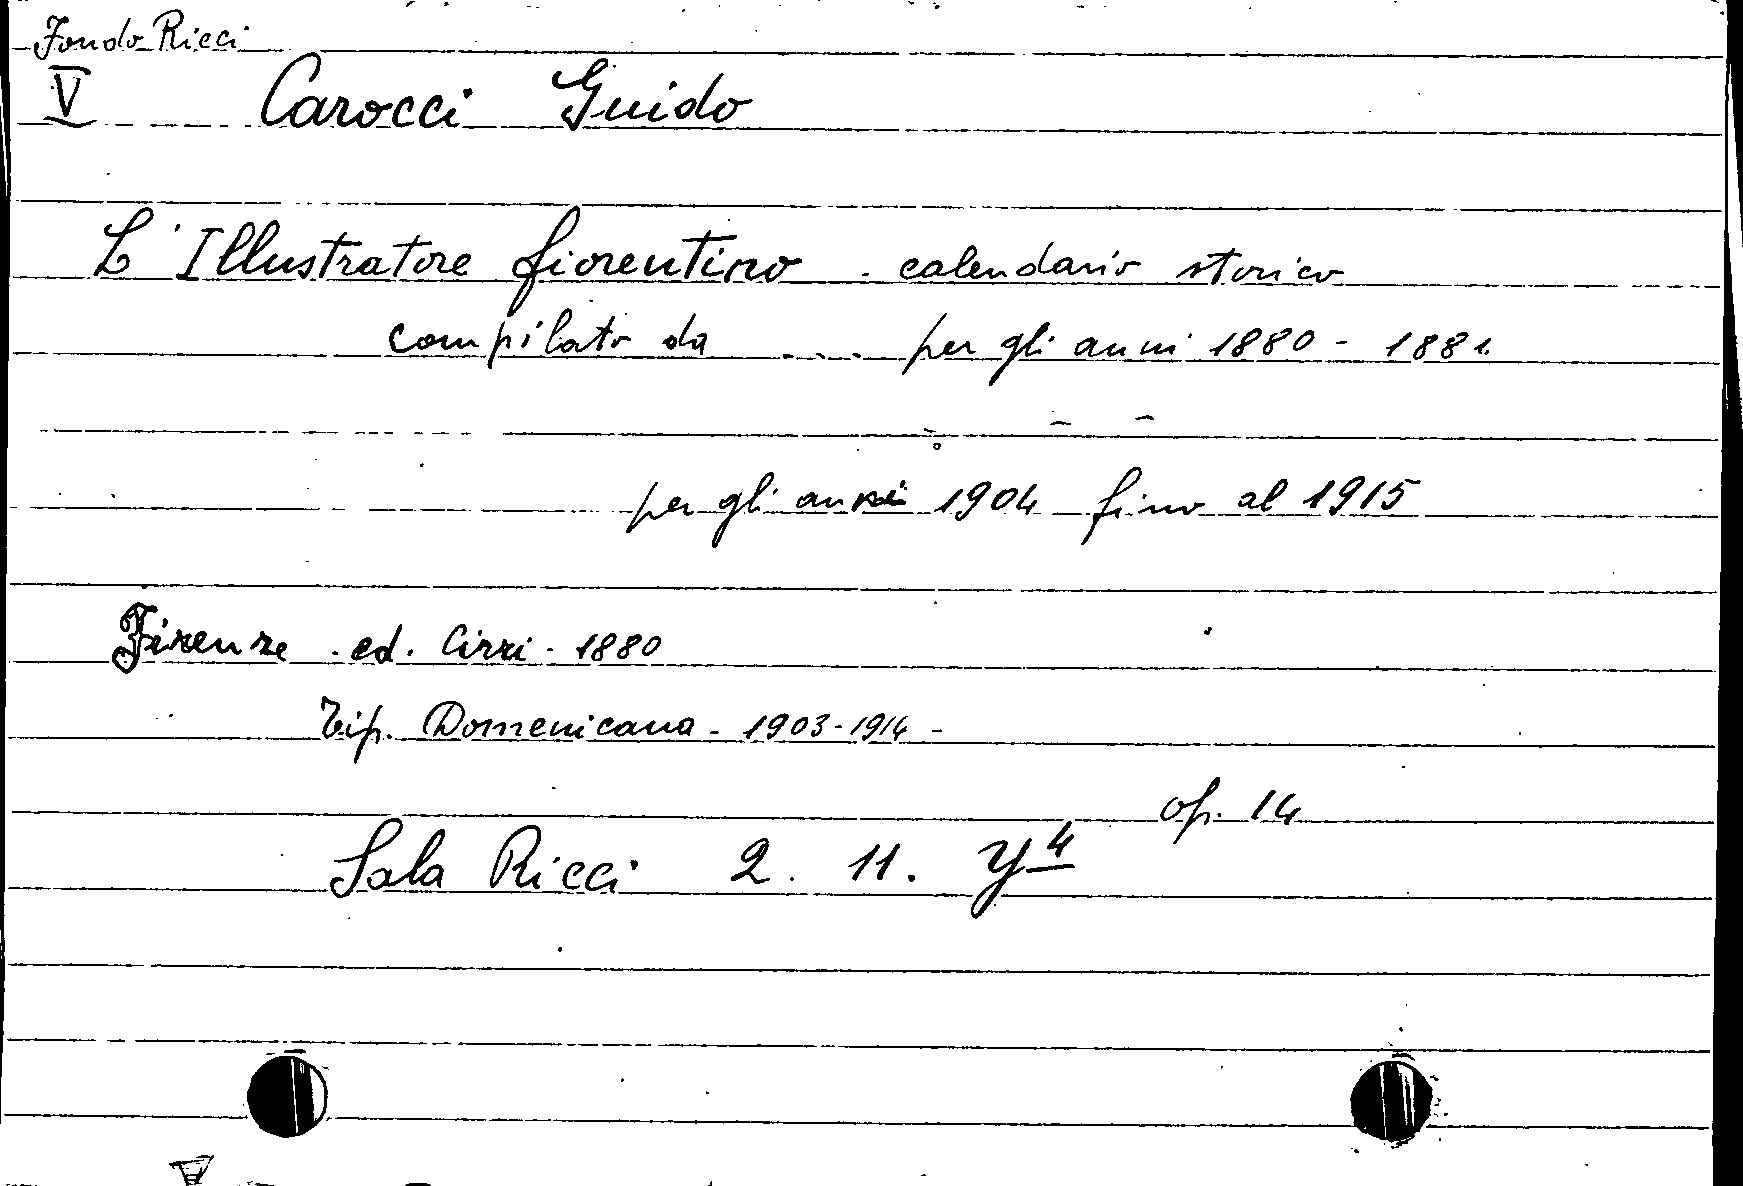 Fondo Ricci
V Carocci Guido
L'Illustratore fiorentino - calendario storico
compilato da .... per gli anni 1880 - 1881.
per gli anni 1904 fino al 1915
Firenze - ed. Cirri - 1880
Tip. Domenicana - 1903-1914 -
op. 14
Sala Ricci 2. 11. Y4